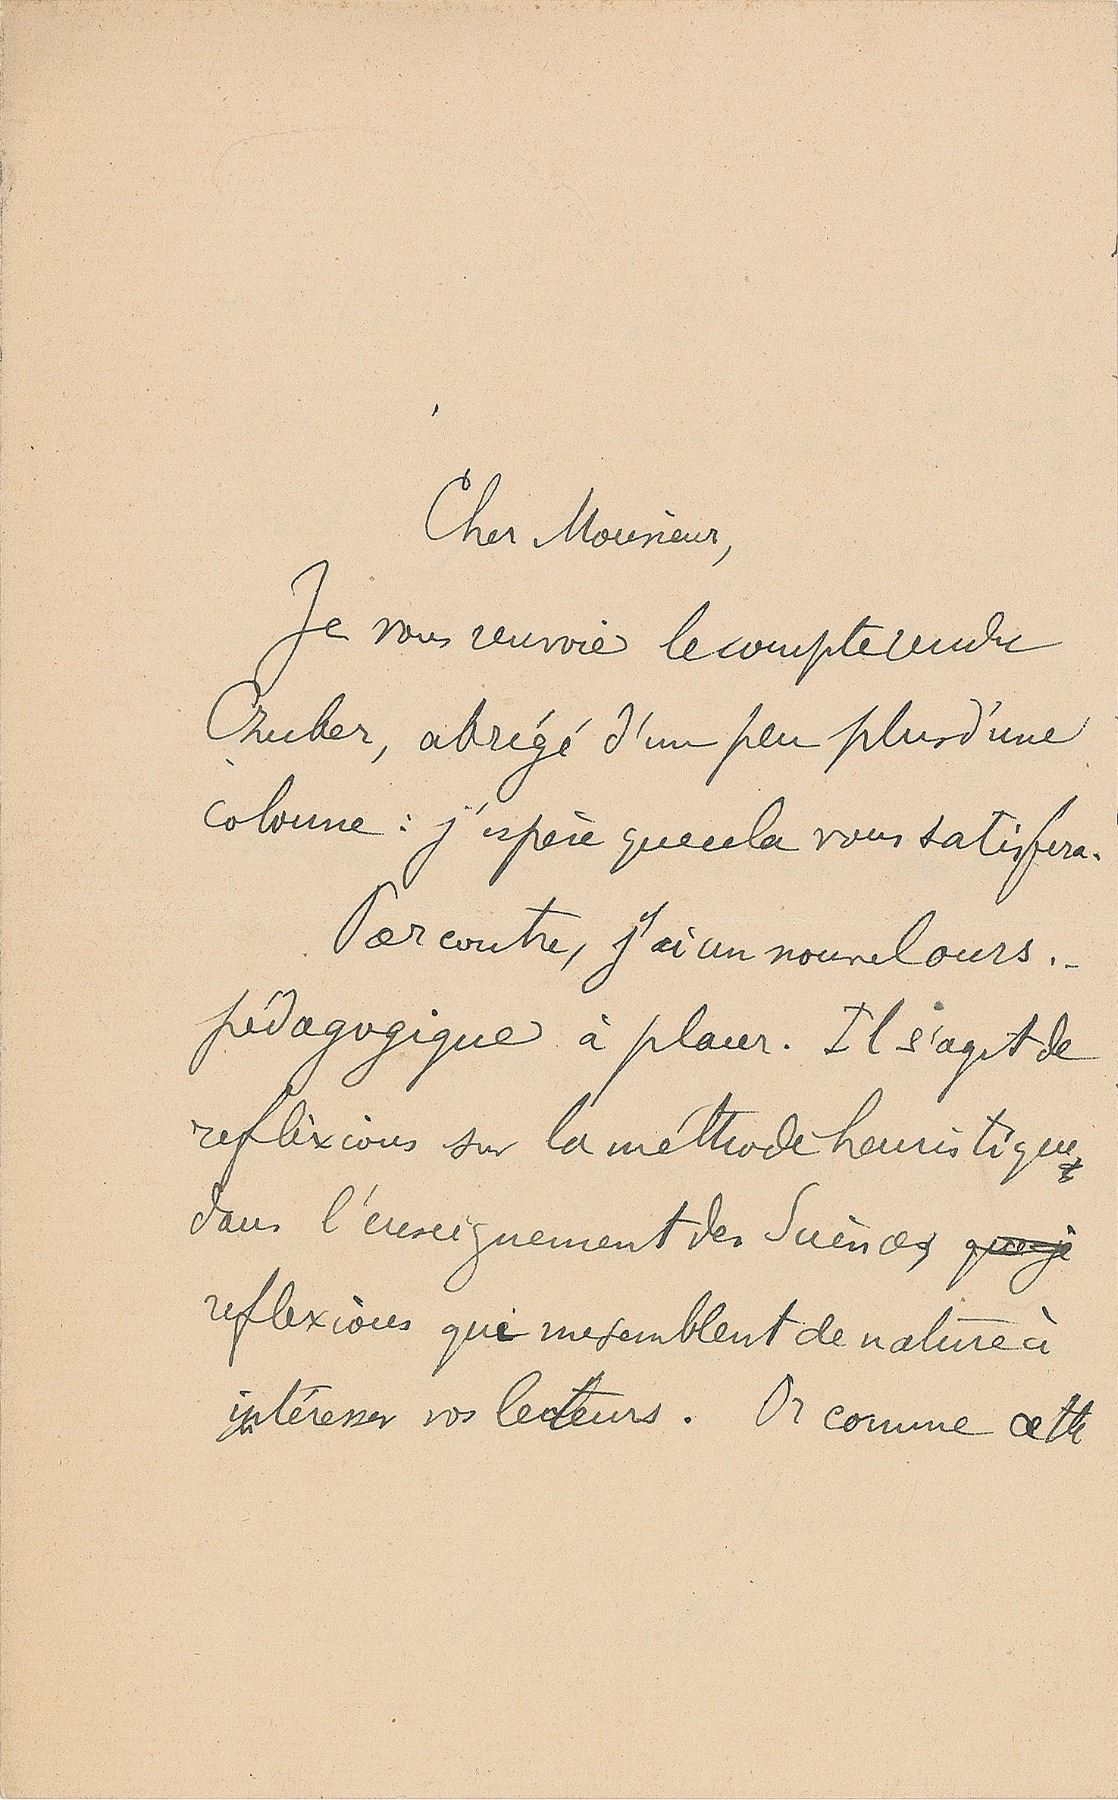 Cher Monsieur,
Je vous renvoie le compte rendu
Czuber, abrégé d'un peu plus d'une
colonne : j'espère que cela vous satisfera.
Par contre, j'ai un nouvel ours
pédagogique à placer. Il s'agit de
reflexions sur la méthode heuristique,
dans l'enseignement des Sciences, que je
reflexions qui me semblent de nature à
intéresser vos lecteurs. Or comme cette